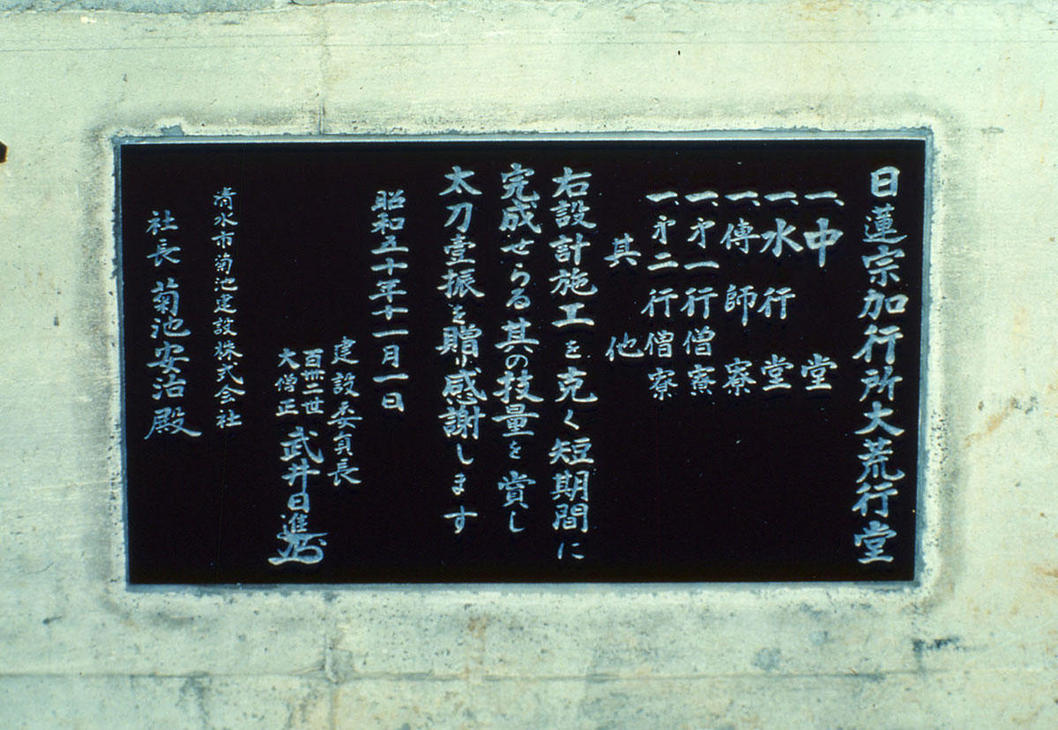 日蓮宗加行所大荒行堂
一、中堂
一、水行堂
一、傳師寮
一、㐧一行僧寮
一、㐧二行僧寮
其他
右設計施工を克く短期間に
完成せらる其の技量を賞し
太刀壹振を贈り感謝します
昭和五十年十一月一日
建設委員長
百卅二世
大僧正
武井日進
清水市菊池建設株式会社
社長 菊池安治殿